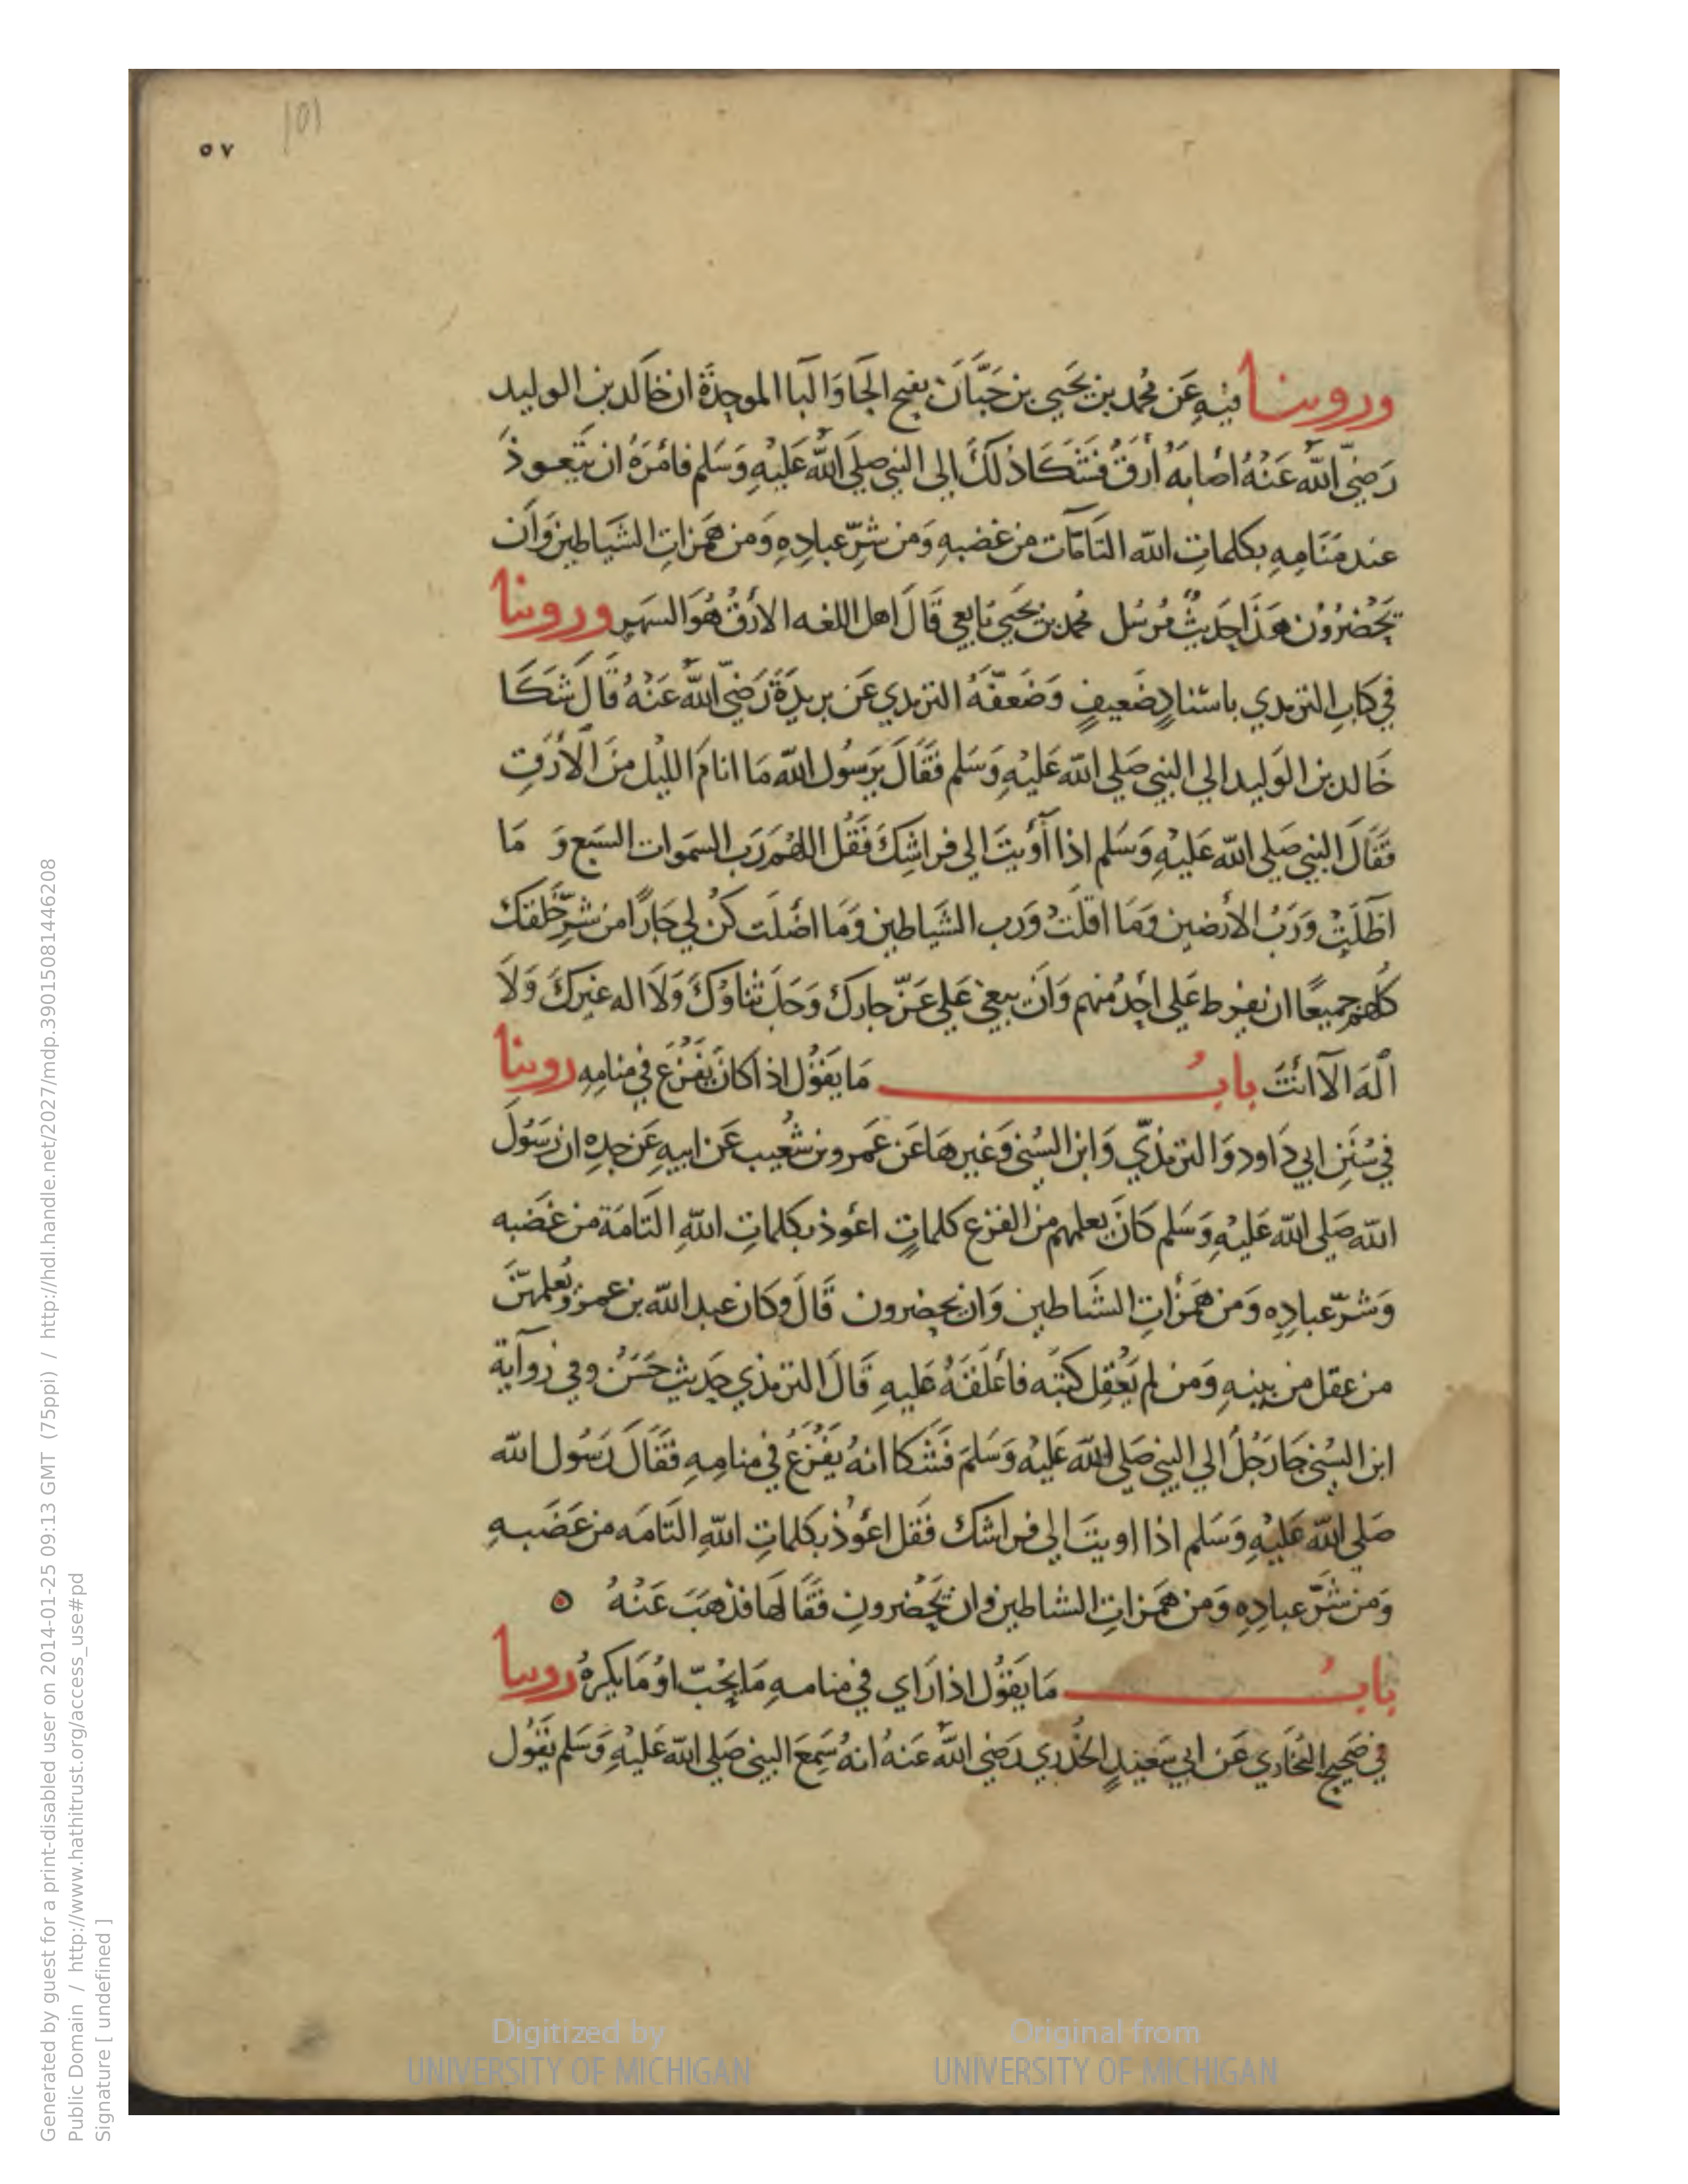 ٥٧
101
وروينا فيه عَن محمد بن يَحيي بن حَبَّان بفتح الحَا وَالبَا الموحدَة ان خالد بن الوليد
رَضيَ اللّه عَنْهُ اصَابهُ أرَقٌ فشَكا ذلكَ إلى النبي صلي اللّه عَليْهِ وَسَلم فامَرَهُ ان يتعوذ
عند مَنَامِهِ بكلماتِ اللّه التَامَّات من غضبهِ وَمن شرِّ عبادِهِ وَمن هَمزاتِ الشيَاطين وَان
يَحْضرُوْن هَذا حَديثٌ مُرسَل محمد بن يَحيي تابعي قَالَ اهل اللغه الارَقُ هُوَ السهر وروينا
في كتابِ الترمدي باسْنادٍ ضَعيفٍ وَضَعفّهُ الترمدي عَن بريدَةَ رَضيَ اللّه عَنْهُ قَالَ شَكا
خَالد بن الوَليد الي النبي صَلي اللّه عَليْهِ وَسَلم فقَالَ يَرَسُول اللّه مَا انامَ الليْل منَ الأرَقِ
فقَالَ النبي صَلي اللّه عَليْهِ وَسَلم اذا أوَيتَ الي فراشِكَ فَقُل اللهُمَ رَب السمَوات السَبع وَ مَا
اظَلَتْ وَرَبُ الأرضين وَمَا اقَلتْ وَرب الشيَاطين وَمَا اضَلت كن لي جَارًا من شرِّ خَلقك
كلهم جميعًا ان يفرط عَلي احدٌ منهم وَان يبغي عَلي عَزّ جارك وَجَل ثناؤكَ وَلا اله غيركَ وَلا
الَه الا انتَ بابُ مَا يَقوُل اذا كانَ يَفْزَع في منامِهِ روينا
في سُنَنِ ابي دَاود وَالترمذيّ وَابن السُني وَغيرهَا عَن عَمرو بن شعَيب عَن ابيهِ عَن جدِهِ ان رَسُولَ
اللّه صَلي اللّه عَليْهِ وَسَلم كانَ يعلمهم من الفزع كلماتٍ اعوذ بكلماتِ اللّهِ التَامَة من غضَبه
وَشرّ عبادِه وَمن هَمزاتِ الشَياطين وَان يحضرون قَالَ وكان عبد اللّه بن عمرو يُعلمهنَّ
من عقل من بنيهِ وَمن لم يَعْقِل كتبَه فأعْلَقهُ عَليهِ قَالَ الترمذي حَديث حَسَن وفي روَاية
ابن السُني جَا رَجُلٌ الي النبي صَلي اللّه عَليْه وَسَلمَ فَشكا انهُ يَفْزعُ في منامِهِ فقَالَ رَسُول اللّه
صَلي اللّه عَليْهِ وَسَلم اذا اويتَ الي فراشك فقل اعوُذ بكلماتِ اللّهِ التَامَه من غَضَبهِ
وَمن شَرّ عبادِهِ وَمن هَمزاتِ الشياطين وان يَحْضرونِ فقَالهَا فذهَبَ عَنْهُ ٥
بابُ مَا يَقوُل اذا رَاي في منامهِ مَا يُحِبّ اوْ مَا يكرهُ روينا
في صَحيح البُخَاري عَن ابي سَعيدٍ الخُدري رَضي اللّه عَنهُ انهُ سَمِعَ النبي صَلي اللّه عَليْهِ وَسَلم يَقوُل
Digitized by
UNIVERSITY OF MICHIGAN
Original from
UNIVERSITY OF MICHIGAN
Generated by guest for a print-disabled user on 2014-01-25 09:13 GMT (75ppi) / http://hdl.handle.net/2027/mdp.39015081446208
Public Domain / http://www.hathitrust.org/access_use#pd
Signature [ undefined ]